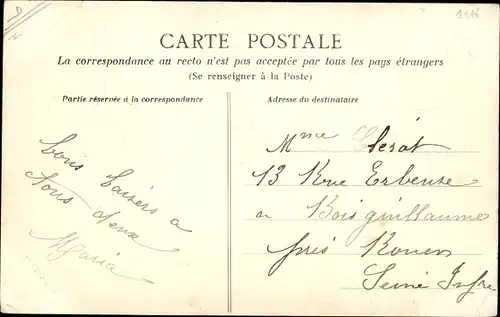 1916
CARTE POSTALE
La correspondance au recto n'est pas acceptée par tous les pays étrangers
(Se renseigner à la Poste)
Partie réservée à la correspondance
Adresse du destinataire
Bons baisers a
tous deux
Maria
Mme
13 Rue Erbeuse
a Bois guillaume
près Rouen
Seine Infre